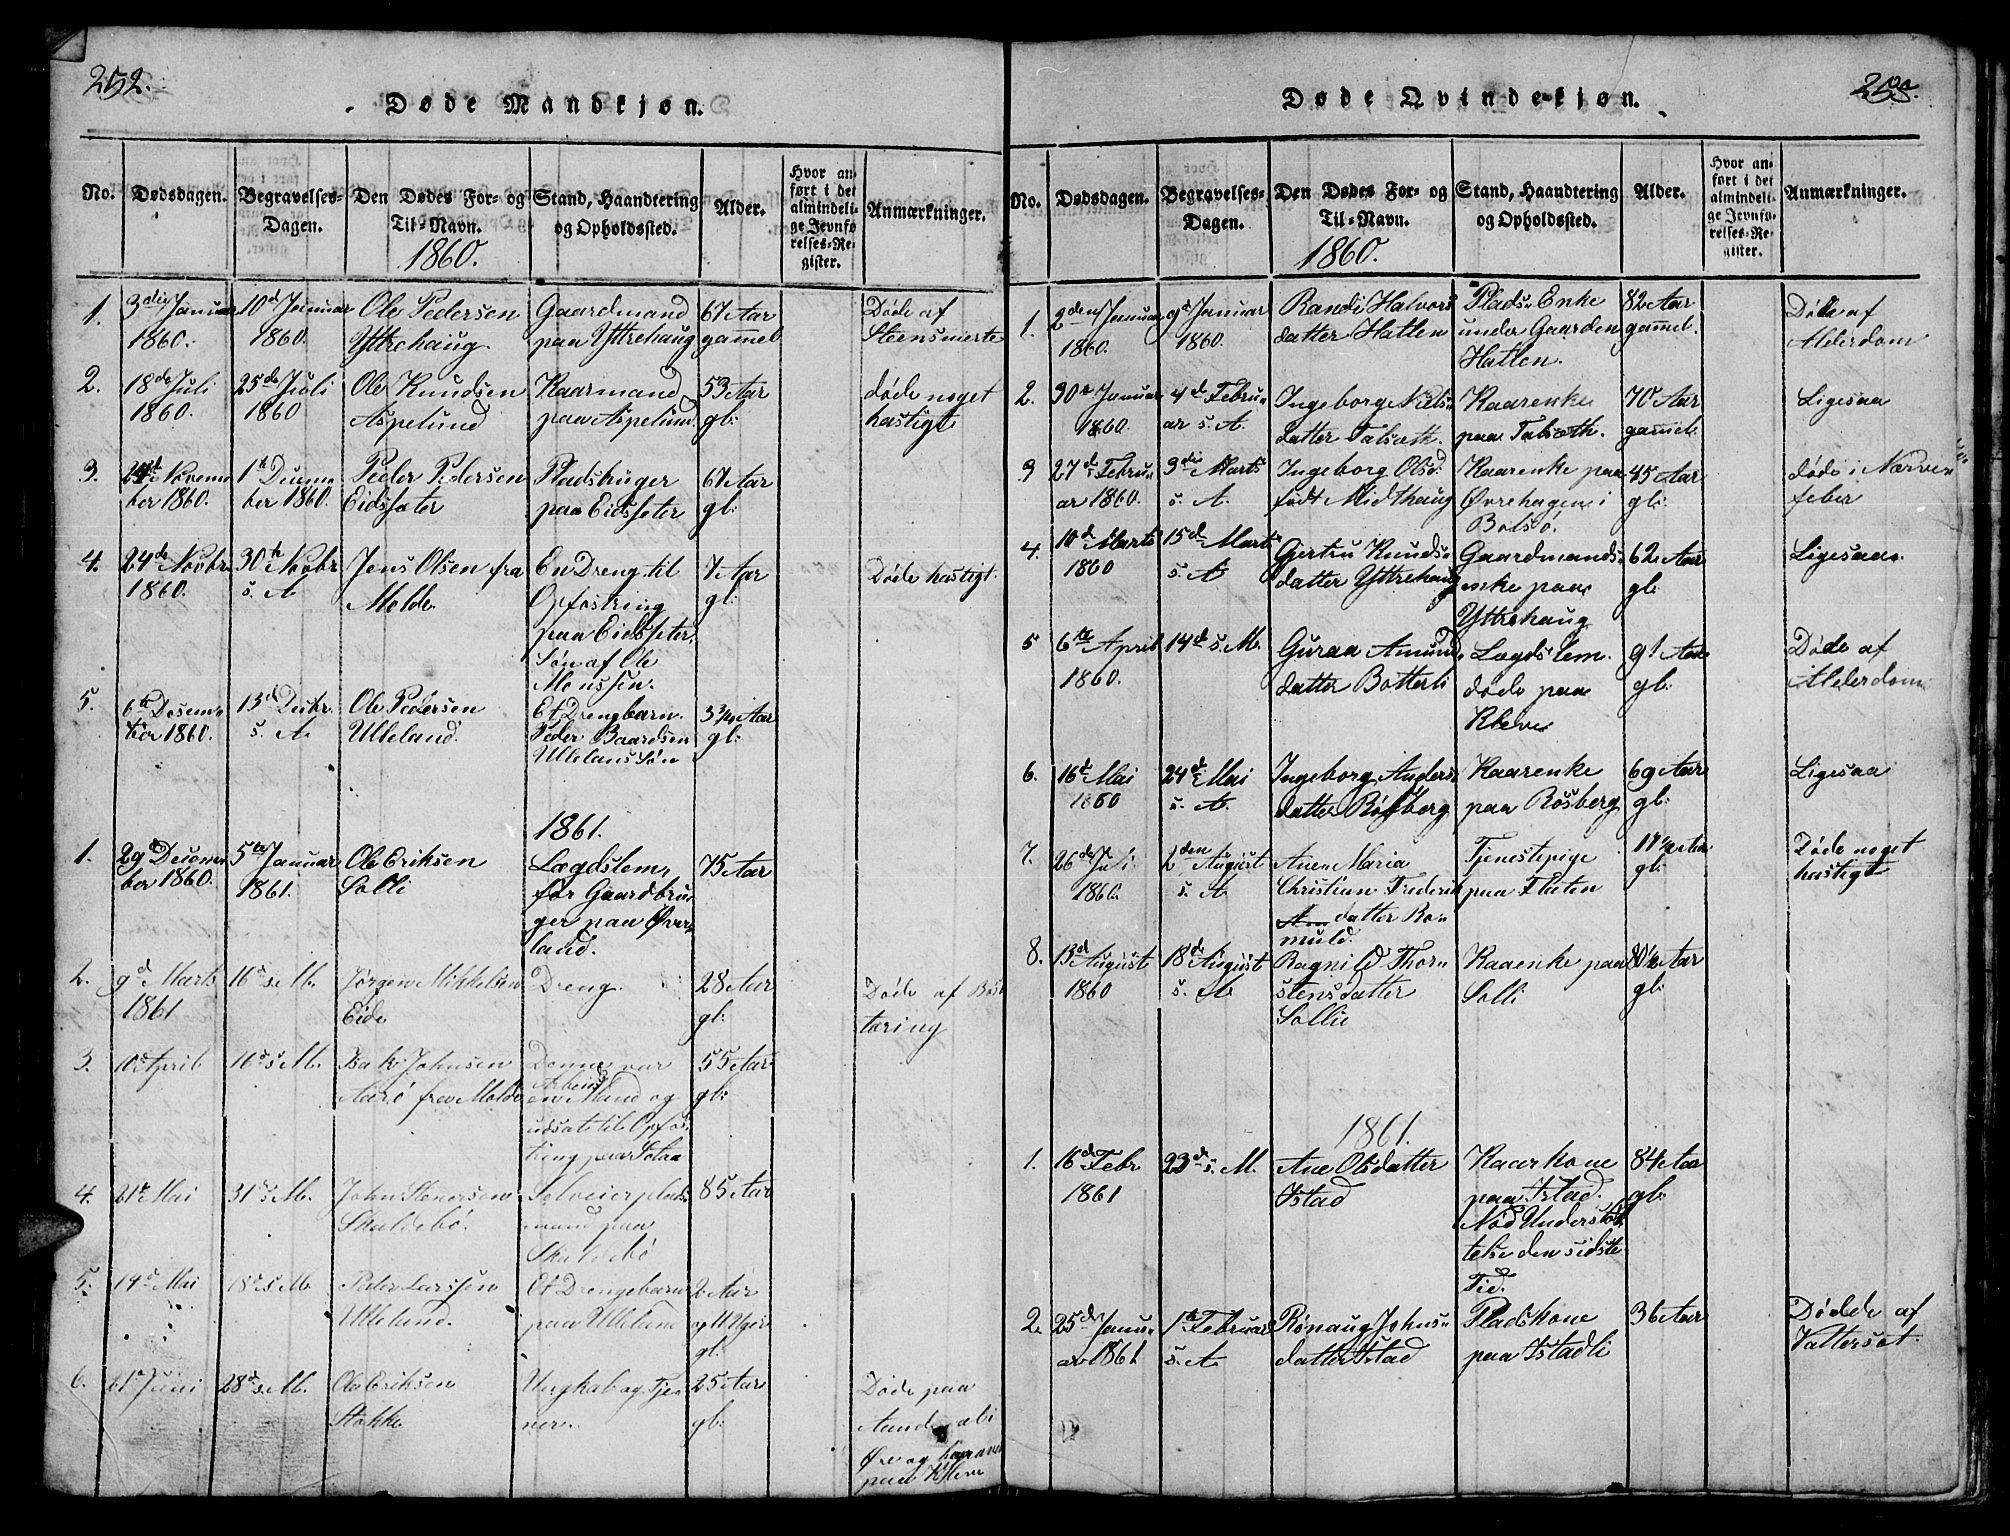 252.
Døde Mandkjøn.
No.
Dødsdagen.
Begravelses-
Dagen.
Den Dødes For- og
Til-Navn.
1860.
Stand, Haandtering
og Opholdssted.
Alder.
Hvor an-
ført i det
almindeli-
ge Jevnfø-
relses-Re-
gister.
Anmærkninger.
1.
3die Januar
1860.
10d Januar
1860.
Ole Pedersen
Yttrehaug.
Gaardmand
paa Yttrehaug
67 Aar
gamel
Døde af
Steensmerte
2.
18de Juli
1860.
25de Juli
1860
Ole Knudsen
Aspelund
Kaarmand
paa Aspelund
53 Aar
gl:
døde noget
hastigt
3.
Novem-
ber 1860.
1te Decem-
ber 1860.
Peder Pedersen
Eidsæter
Pladsbruger
paa Eidsæter
67 Aar
gl:
4.
24de Novbr
1860.
30te Novbr
s. A
Jens Olsen fra
Molde
En Dreng til
Opfostring
paa Eidsæter,
Søn af Ole
Monssen.
7 Aar
gl:
Døde hastigt.
5.
6te Desem-
ber 1860.
13d Decbr.
s. A
Ole Pedersen
Ulleland.
Et Drengbarn
Peder Baardsen
Ullelans Søn
Aar
gl:
1861.
1.
29de Decem-
ber 1860.
5te Januar
1861.
Ole Eriksen
Solli
Lægdslem,
før Gaardbru-
ger paa Øver-
land.
75 Aar
2.
9d Marts
1861
16d s. M.
Jørgen Mikkelsen
Eide
Dreng
28 Aar
gl:
Døde af
tæring
3.
10d April
16d s. M.
Johnsen
Aarø fra Molde
Denne var
en Mand og
udsat til Opfos-
tring paa
55 Aar
gl:
4.
21de Mai
31d s. M.
John Stenersen
Skaldebø.
Selveierplads-
mand paa
Skaldebø
85 Aar
5.
14d Mai
18d s. M
Peder Larssen
Ulleland.
Et Drengebarn
paa Ulleland
2 Aar
og 11 Uger
gl:
6.
21d Juni
28d s. M.
Ole Eriksen
Stokke
Ungkal og Tje-
ner.
25 Aar
gl:
Døde paa
Øre og begraven
paa Kleve
Døde Qvindekjøn.
No.
Dødsdagen.
Begravelses-
Dagen.
Den Dødes For- og
Til-Navn.
1860.
Stand, Haandtering
og Opholdssted.
Alder.
Hvor an-
ført i det
almindeli-
ge Jevnfø-
relses-Re-
gister.
Anmærkninger.
1.
2den Januar
1860.
9d Januar
1860.
Randi Halvors
datter Hatlen
Plads-Enke
under Gaarden
Hatlen.
82 Aar
gamel.
Døde af
Alderdom
2.
30te Januar
1860.
4de Febru-
ar s. A.
Ingeborg Niels-
datter Talsæth.
Kaarenke
paa Talsæth.
70 Aar
gamel.
Ligesaa
3
27d Febru-
ar 1860.
3die Marts
s. A.
Ingeborg Olsd:
født Midthaug
Kaarenke paa
Øvrehagen i
Bolsø.
45 Aar
gl:
døde i Nerve-
feber
4.
10d Marts
1860
15d Marts
s. A
Gjertru Knuds-
datter Yttrehaug
Gaardmands-
enke paa
Yttrehaug
62 Aar
gl:
Ligesaa
5
6te April
1860.
14d s. M.
Guraa Amund-
datter Botterli
Lægdslem.
døde paa
Kleve
91 Aar
gl:
Døde af
Alderdom
6.
16d Mai
1860
24d Mai
s. A.
Ingeborg Anders-
datter Røsberg
Kaarenke
paa Røsberg
69 Aar
gl:
Ligesaa
7.
26de Juli
1860.
2den August
s. A
Ane Maria
Christian Frederik
datter Ro-
muld.
Tjenestepige
paa Flaten
Aar
gl:
Døde noget
hastigt
8.
13d August
1860
18de August
s. A.
Ragnild Thor-
stensdatter
Sollie
Kaaenke paa
Solli
80½ Aar
gl:
1861.
1.
16de Febr
1861
23de s. M.
Ane Olsdatter
Istad
Kaarkone
paa Istad.
Nød Understøt-
telse den sidste
Tid.
84 Aar
gl:
2.
25de Janu-
ar 1861
1te Februar
s. A.
Rønaug Johns-
datter Istad
Pladskone
paa Istadli
36 Aar
Dødde af
Vattersot.